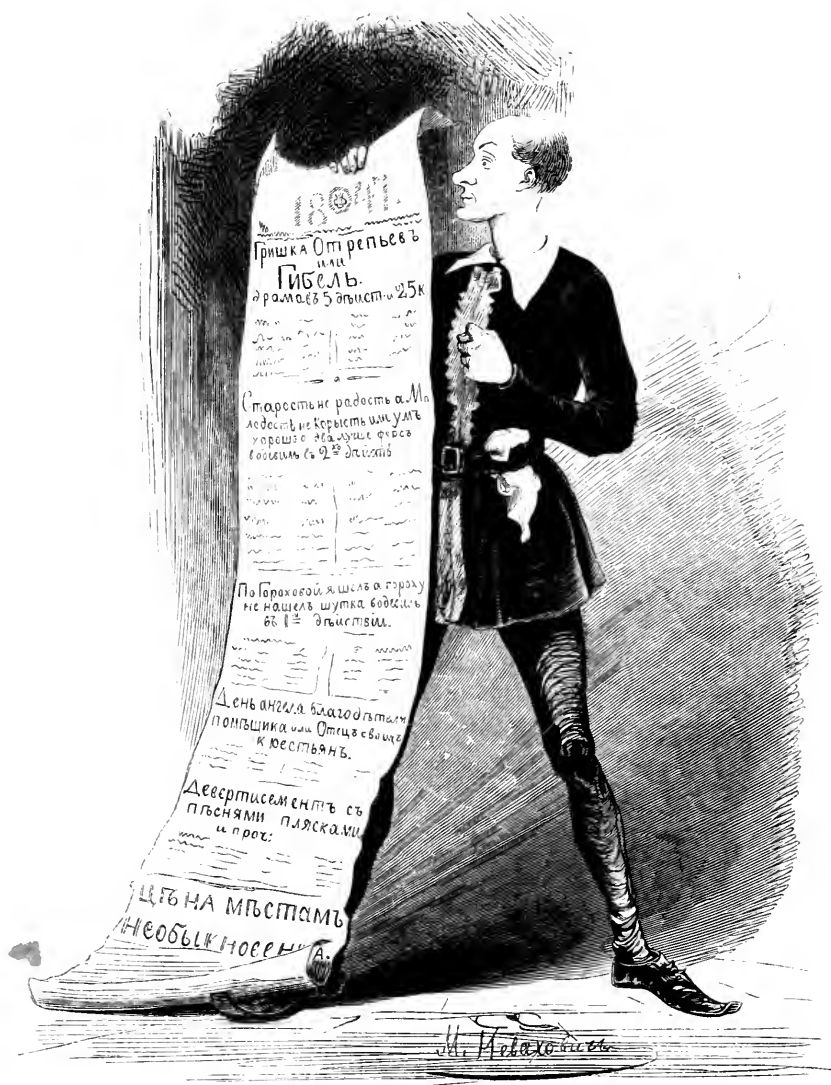 1847.
Гришка Отрепьевъ
или
Гибель.
драма въ 5 дѣист. и 25 к
Старость не радость а Мо
лодость не корысть или умъ
хорошо а два луше фарсъ
водевиль въ 2хъ дѣйств
По Гороховой я шелъ а гороху
не нашелъ шутка водевиль
въ 1мъ дѣистви.
День ангела благодѣтеля
помѣщика или Отецъ своихъ
крестьянъ.
Девертисементъ съ
пѣснями плясками
и проч:
ЦѢНА МѢСТАМЪ
НЕОБЫКНОВЕННА.
М. Неваховичъ